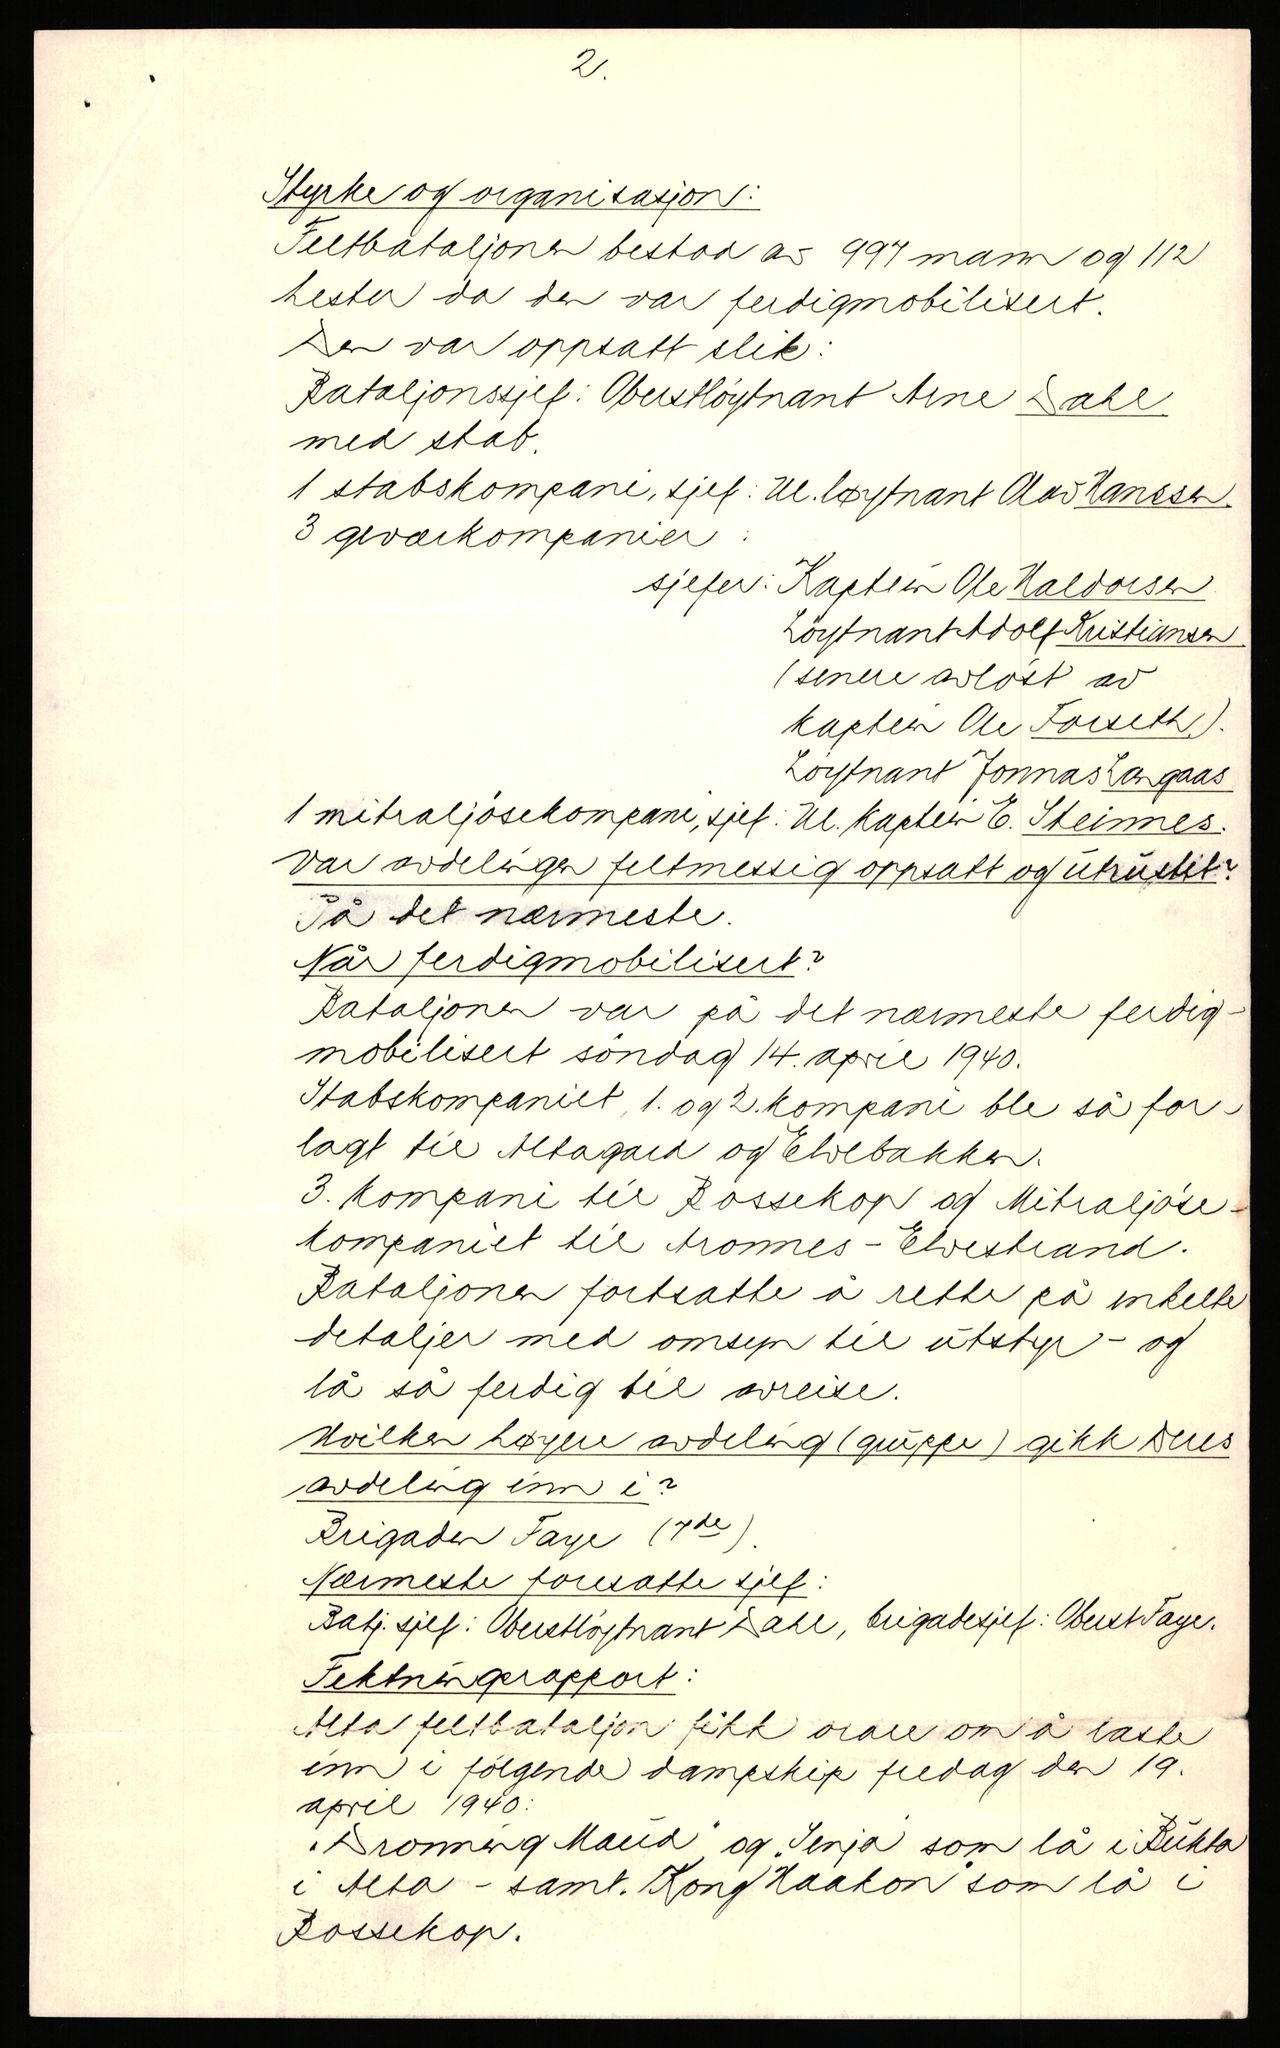 2.
Styrke og organisasjon:
Feltbataljonen bestod av 997 mann og 112
hester da den var ferdigmobilisert.
Den var oppsatt slik:
Bataljonssjef: Oberstløytnant Arne Dahl
med stab.
1 stabskompani, sjef: Ul. løytnant Olav Hanssen.
3 geværkompanier:
sjefer: Kaptein Ole Haldorsen
Løytnant Adolf Kristiansen
(senere avløst av
kaptein Ole Forseth).
Løytnant Jonnas Langaas
1 mitraljøsekompani, sjef: Ul. kaptein E. Steinnes.
Var avdelingen feltmessig oppsatt og utrustet?
På det nærmeste.
Når ferdigmobilisert?
Bataljonen var på det nærmeste ferdig-
mobilisert søndag 14. april 1940.
Stabskompaniet, 1. og 2. kompani ble så for-
lagt til Altagard og Elvebakken.
3. kompani til Bossekop og Mitraljøse-
kompaniet til Aronnes - Elvestrand.
Bataljonen fortsatte å rette på enkelte
detaljer med omsyn til utstyr - og
lå så ferdig til avreise.
Hvilken høyere avdeling (gruppe) gikk Deres
avdeling inn i?
Brigaden Faye (7de).
Nærmeste foresatte sjef:
Batj. sjef: Oberstløytnant Dahl, brigadesjef: Oberst Faye.
Fektningsrapport:
Alta feltbataljon fikk ordre om å laste
inn i følgende dampskip fredag den 19.
april 1940:
"Dronning Maud" og "Senja" som lå i Bukta
i Alta - samt. "Kong Haakon" som lå i
Bossekop.